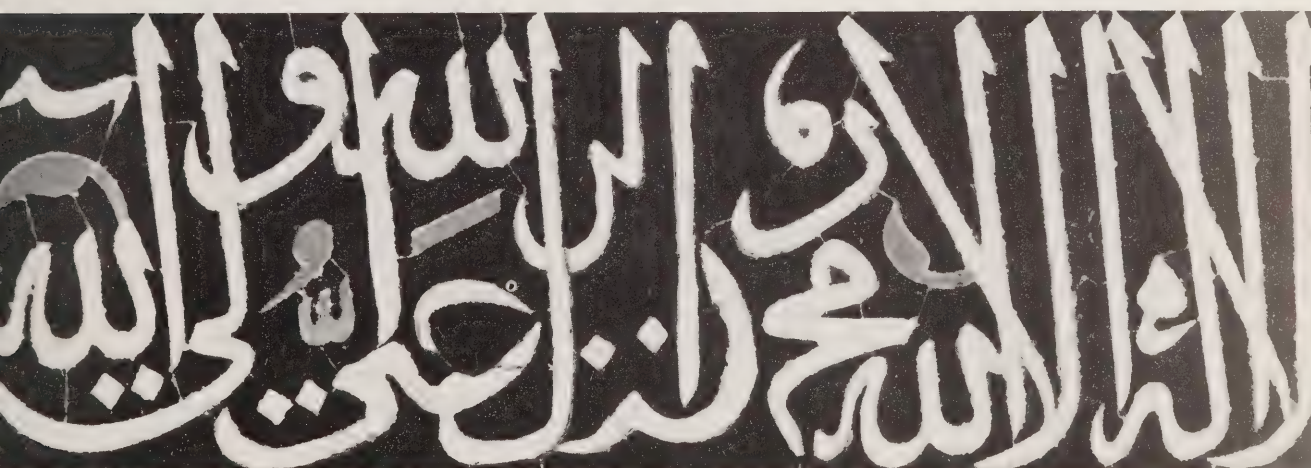 لا اله الا الله محمد الله علي ولي الله